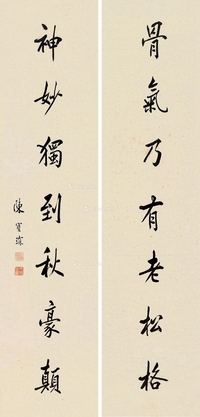 骨氣乃有老松格
神妙獨到秋豪顛
陳寶琛